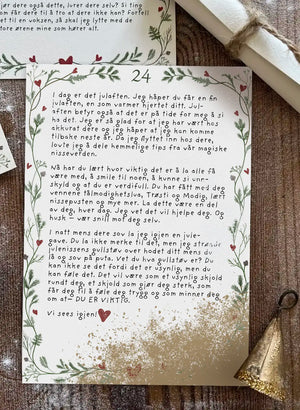 gjør dere også dette, lurer dere selv? Si ting
som får dere til å tro at dere ikke kan? Fortell
det til en voksen, så skal jeg lytte med de
store ørene mine som hører alt.
24
I dag er det julaften. Jeg håper du får en fin
julaften, en som varmer hjertet ditt. Jul-
aften betyr også at det er på tide for meg å si
ha det. Jeg er så glad for at jeg var hos
akkurat dere og jeg håper at jeg kan komme
tilbake neste år. Da jeg flyttet inn hos dere,
lovte jeg å dele hemmelige tips fra vår magiske
nisseverden.
Nå har du lært hvor viktig det er å la alle få
være med, å smile til noen, å kunne si unn-
skyld og at du er verdifull. Du har fått med deg
vennene tålmodighetsliva, Trøsti og Modig, lært
nissepusten og mye mer. La dette være en del
av deg, hver dag. Jeg vet det vil hjelpe deg. Og
husk – vær snill mot deg selv.
I natt mens dere sov la jeg igjen en jule-
gave. Du la ikke merke til det, men jeg strødde
julenissens gullstøv over hodet ditt mens du
lå og sov på puta. Vet du hva gullstøv er? Du
kan ikke se det fordi det er usynlig, men du
kan føle det. Det vil være som et usynlig skjold
rundt deg, et skjold som gjør deg sterk, som
får deg til å føle deg trygg og som minner deg
om at– DU ER VIKTIG.
Vi sees igjen!